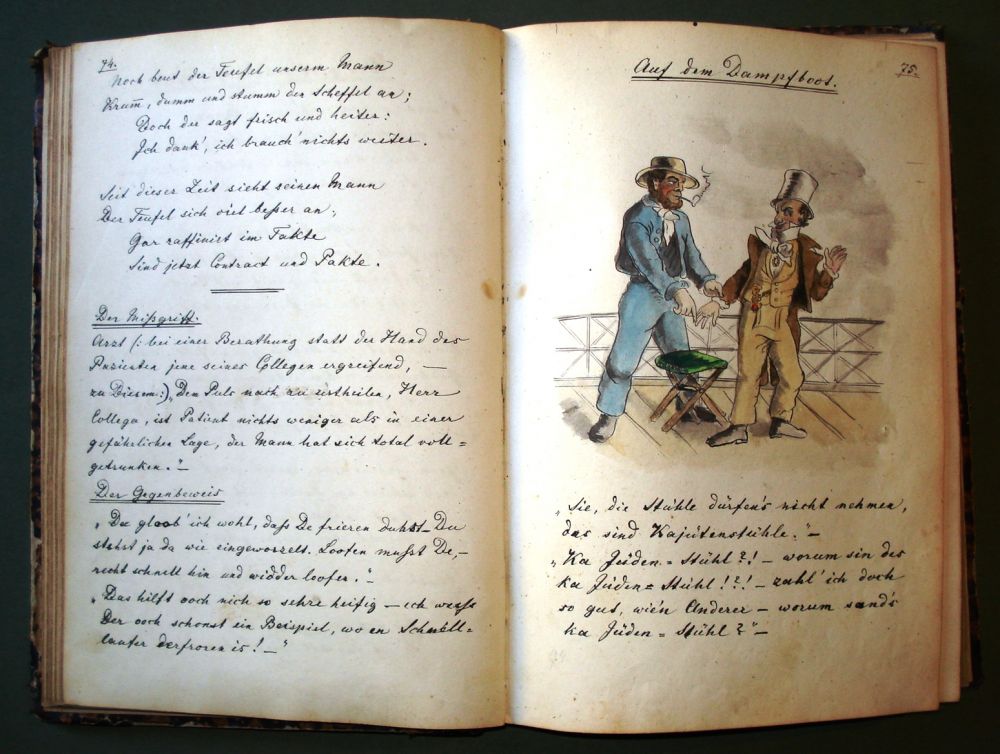 74.
Noch beut der Teufel unserm Mann
Krum̅, dumm und stumm den Scheffel an;
Doch der sagt frisch und heiter:
Ich dank', ich brauch' nichts weiter.
Seit dieser Zeit sieht seinen Mann
Der Teufel sich viel beßer an;
Gar raffinirt im Takte
Sind jetzt Contract und Pakte.
Der Mißgriff.
Arzt (: bei einer Berathung statt der Hand des
Pazienten jene seines Collegen ergreifend, —
zu Diesem:) „Den Puls nach zu urtheilen, Herr
Collega, ist Patient nichts weniger als in einer
gefährlichen Lage, der Mann hat sich total voll=
getrunken." —
Der Gegenbeweis
„Da gloob' ich wohl, daß De frieren duhst — Du
stehst ja da wie eingeworzelt. Loofen mußt De, —
recht schnell hin und widder loofen." —
„Das hilft ooch nich so sehre heifig — ich weeß
Der ooch schonst ein Beispiel, wo en Schnell=
laufer derfroren is! —"
Auf dem Dampfboot.
75.
„Sie, die Stühle dürfen's nicht nehmen,
das sind Kajütenstühle." —
„Ka Jüden=Stühl?! — worum sin des
ka Jüden=Stühl!?! — zahl' ich doch
so gut, wie'n Anderer — worum sand's
ka Jüden=Stühl?" —